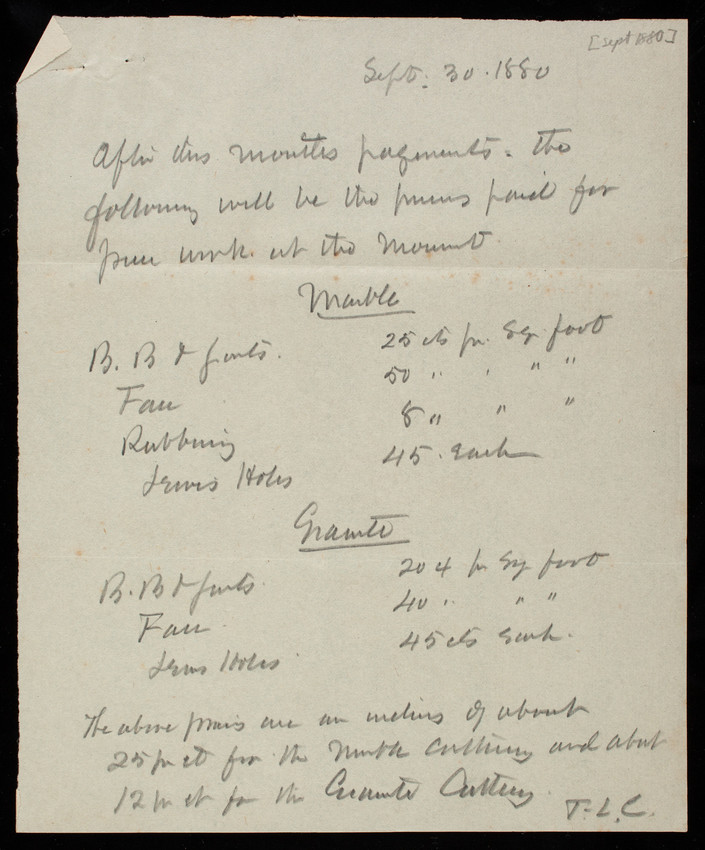 [Sept 1880]
Sept. 30. 1880
After this months payments - the
following will be the prices paid for
piece work at the Monument
Marble
B. B & Joints. 25 cts pr. Sq. foot
Face 50 " ' " "
Rubbing 8 " " "
Lewis Holes 45. Each
Granite
B. B & Joints. 20 ¢ pr Sq. foot
Face 40 " " "
Lewis Holes 45 cts Each.
The above prices are an of about
25 pr ct for the Marble Cutting and about
12 pr ct for the Granite Cutting.
T. L. C.